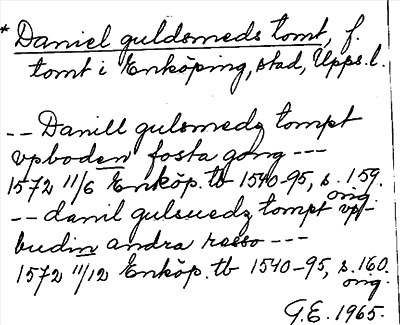 * Daniel guldsmeds tomt, f.
tomt i Enköping, stad, Upps.l.
-- Danill gulsmedz tompt
vpboden fosta gong ---
1572 11/6 Enköp. tb 1540-95, s. 159.
orig.
-- danil gulsuedz tompt vp-
budin andra resso ---
1572 11/12 Enköp. tb 1540-95, s. 160.
orig.
G.E. 1965.